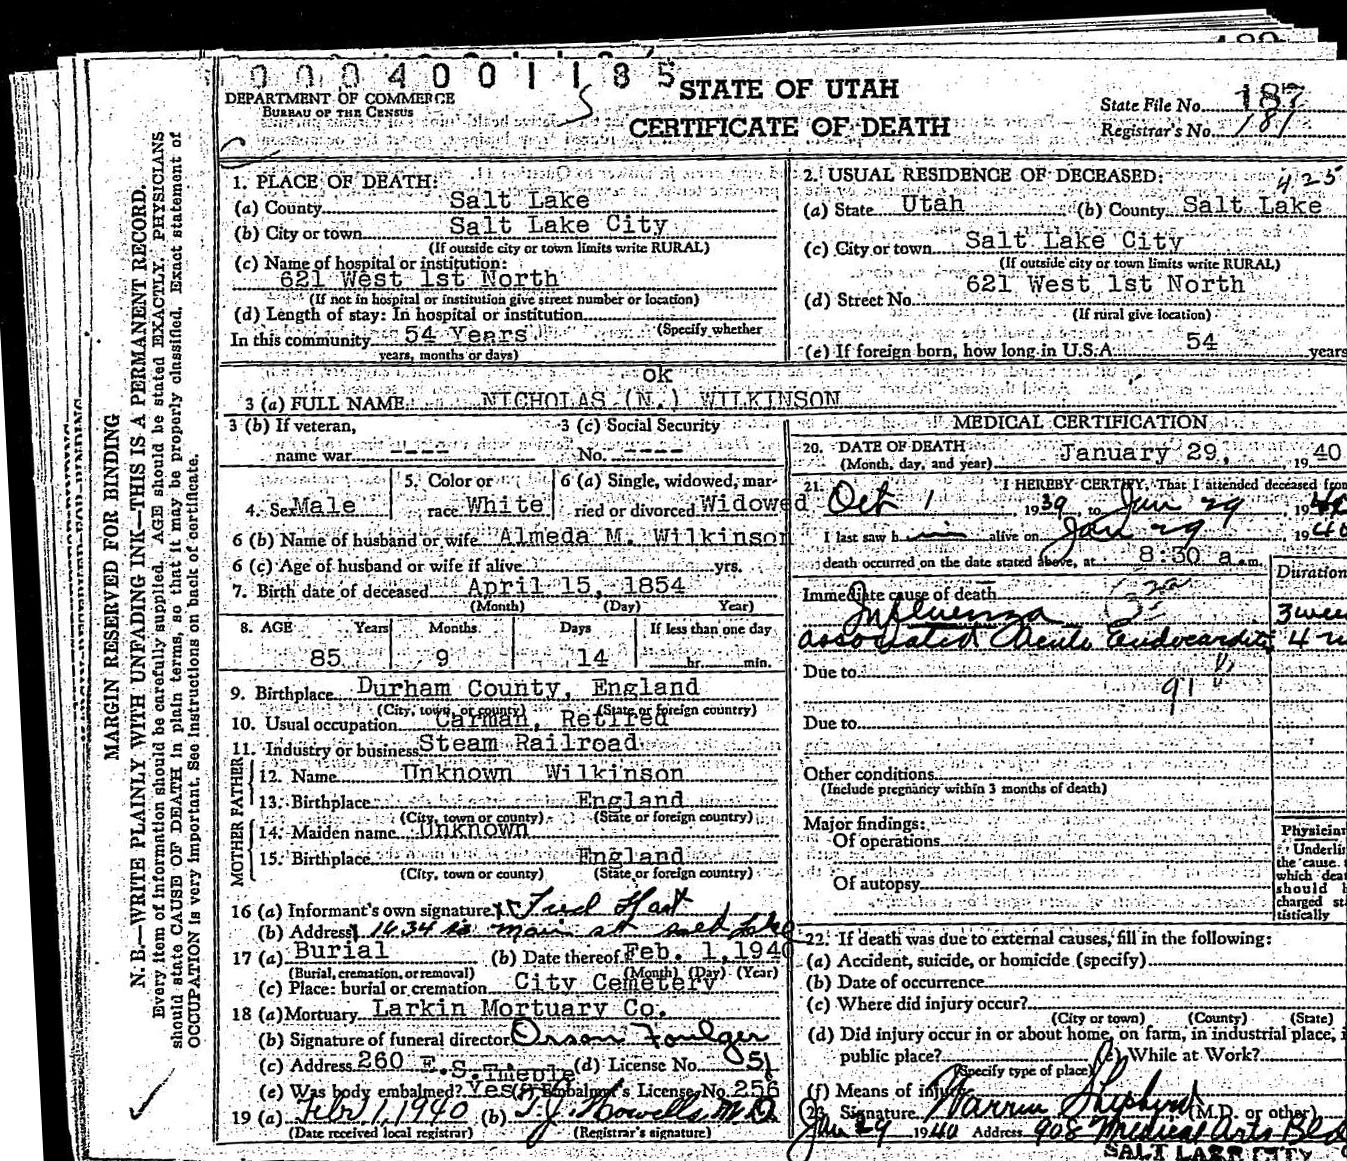 0004001185
STATE OF UTAH
DEPARTMENT OF COMMERCE
BUREAU OF THE CENSUS
CERTIFICATE OF DEATH
State File No. 187
Registrar's No. 181
MARGIN RESERVED FOR BINDING
N. B.—WRITE PLAINLY WITH UNFADING INK—THIS IS A PERMANENT RECORD.
Every item of information should be carefully supplied. AGE should be stated EXACTLY. PHYSICIANS
should state CAUSE OF DEATH in plain terms, so that it may be properly classified. Exact statement of
OCCUPATION is very important. See instructions on back of certificate.
1. PLACE OF DEATH:
(a) County Salt Lake
(b) City or town Salt Lake City
(If outside city or town limits write RURAL)
(c) Name of hospital or institution:
621 West 1st North
(If not in hospital or institution give street number or location)
(d) Length of stay: In hospital or institution
(Specify whether
In this community 54 Years
years, months or days)
2. USUAL RESIDENCE OF DECEASED:
425
(a) State Utah (b) County Salt Lake
(c) City or town Salt Lake City
(If outside city or town limits write RURAL)
(d) Street No. 621 West 1st North
(If rural give location)
(e) If foreign born, how long in U.S.A. 54 years
ok
3 (a) FULL NAME NICHOLAS (N.) WILKINSON
3 (b) If veteran,
name war ----
3 (c) Social Security
No. ----
4. Sex Male
5. Color or
race White
6 (a) Single, widowed, mar-
ried or divorced Widowed
6 (b) Name of husband or wife Almeda M. Wilkinson
6 (c) Age of husband or wife if alive yrs.
7. Birth date of deceased April 15, 1854
(Month) (Day) Year)
8. AGE Years Months Days If less than one day
85 9 14 hr. min.
9. Birthplace Durham County, England
(City, town, or county) (State or foreign country)
10. Usual occupation Carman, Retired
11. Industry or business Steam Railroad
FATHER
12. Name Unknown Wilkinson
13. Birthplace England
(City, town or county) (State or foreign country)
MOTHER
14. Maiden name Unknown
15. Birthplace England
(City, town or county) (State or foreign country)
16 (a) Informant's own signature x Fred Hast
(b) Address 1634 so main st salt Lake
17 (a) Burial (b) Date thereof Feb. 1, 1940
(Burial, cremation, or removal) (Month) (Day) (Year)
(c) Place: burial or cremation City Cemetery
18 (a) Mortuary Larkin Mortuary Co.
(b) Signature of funeral director Orson Foulger
(c) Address 260 E.S. Temple (d) License No. 51
(e) Was body embalmed? Yes (f) Embalmer's License No. 256
19 (a) Febr 1, 1940 (b) T.J. Howells M.D.
(Date received local registrar) (Registrar's signature)
MEDICAL CERTIFICATION
20. DATE OF DEATH
(Month, day, and year) January 29, 1940
21. I HEREBY CERTIFY, That I attended deceased from
Oct 1 1939, to Jan 29, 1940
I last saw him alive on Jan 29 1940
death occurred on the date stated above, at 8:30 a.m.
Duration
Immediate cause of death
Influenza 3
associated acute Endocarditis 4
Due to
91
Due to
Other conditions
(Include pregnancy within 3 months of death)
Major findings:
Of operations
Of autopsy
Physician
Underli
the cause
which dea
should
charged st
tistically
22. If death was due to external causes, fill in the following:
(a) Accident, suicide, or homicide (specify)
(b) Date of occurrence
(c) Where did injury occur?
(City or town) (County) (State)
(d) Did injury occur in or about home, on farm, in industrial place, i
public place? (e) While at Work?
(Specify type of place)
(f) Means of injury
23. Signature Warren Shepherd (M.D. or other)
Jan 29 1940 Address 908 Medical Arts Bld
SALT LAKE CITY